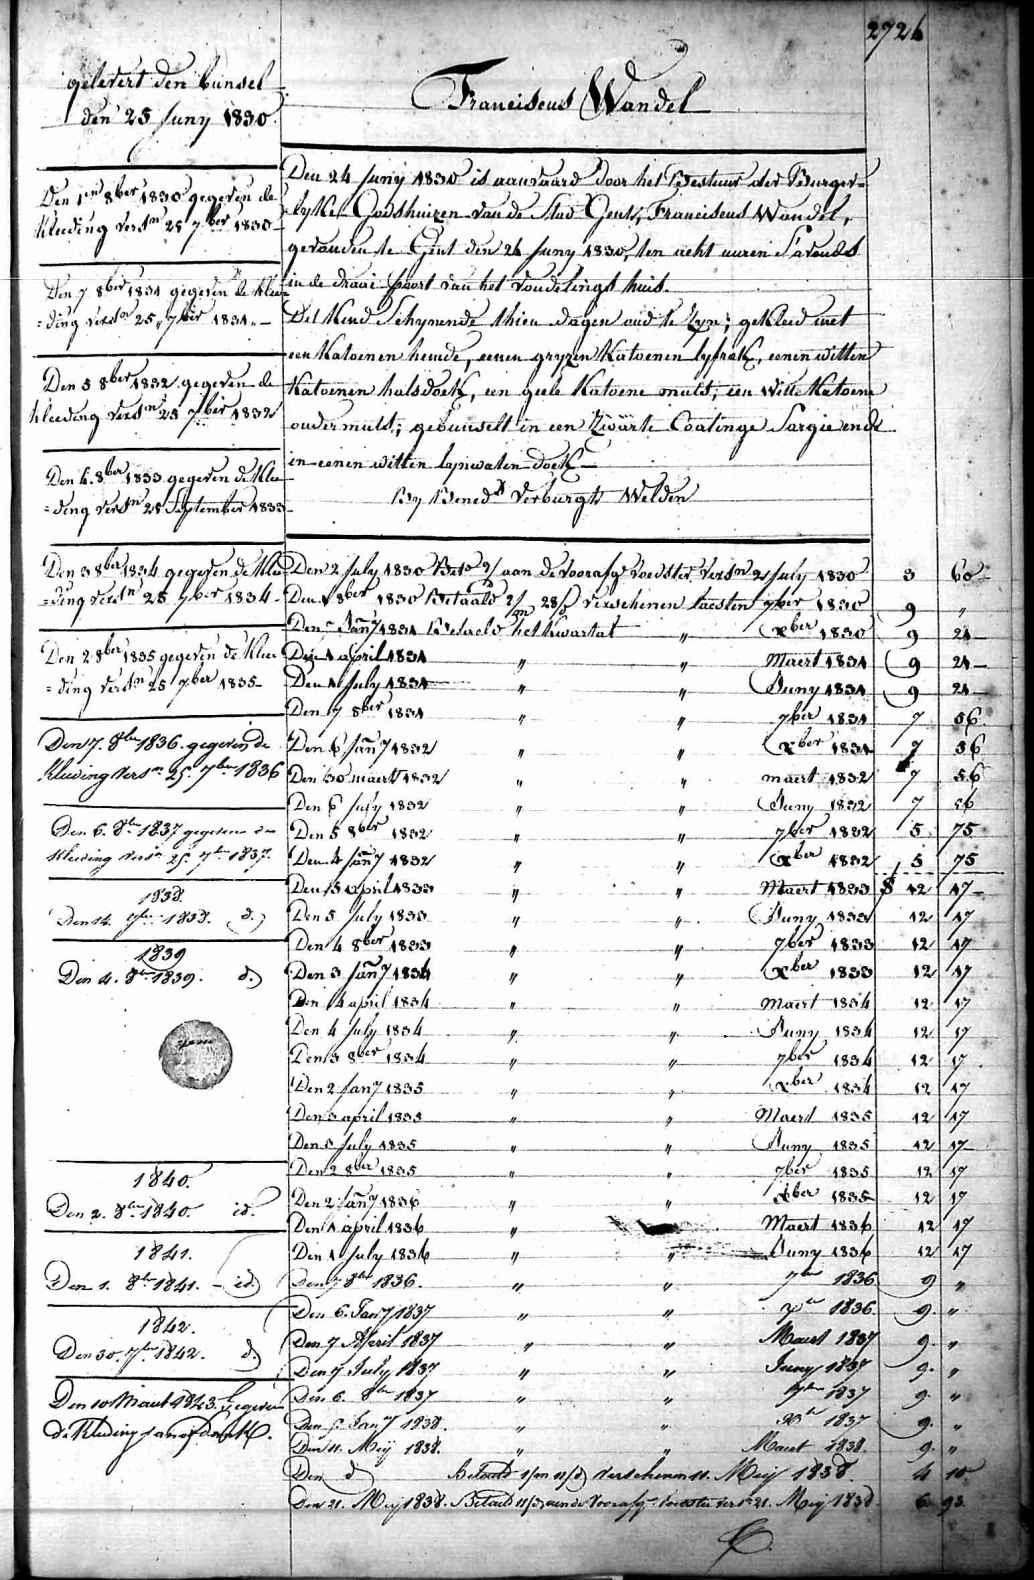 2726
gelevert den bunsel
den 25 Juny 1830
Franciscus Wandel
Den 24 Juny 1830 is aanvaard door het Bestuur der Burger=
lyke Godshuizen van de Stad Gent, Franciscus Wandel,
gevonden te Gent den 24 Juny 1830, ten acht uuren S'avonds
in de draai poort van het vondelings huis.
Het Kind Schynende thien dagen oud te Zyn; gekleed met
een Katoenen hemde, eenen gryzen Katoenen lyfrok, eenen witten
Katoenen halsdoek, een geele Katoene muts, een witte Katoene
ondermuts; gebunselt in een Zwarte Coatinge Sargie ende
in eenen witten lynwaten doek
By Bened Verburgh Welden
Den 1en 8ber 1830 gegeven de
Kleeding versn 25 7ber 1830
Den 7 8ber 1831 gegeven de Klee
=ding versn 25 7ber 1831
Den 5 8ber 1832 gegeven de
Kleeding versn 25 7ber 1832
Den 4 8ber 1833 gegeven de Klee
=ding versn 25 September 1833
Den 3 8ber 1834 gegeven de Klee
=ding versn 25 7ber 1834
Den 2 8ber 1835 gegeven de Klee
=ding versn 25 7ber 1835
Den 7. 8ber 1836 gegeven de
Kleeding versn 25 7ber 1836
Den 6. 8br 1837 gegeven de
Kleeding versn 25 7br 1837.
1838.
Den 14. 1838. d.
1839
Den 4. 8br 1839. d.
1840.
Den 2. 8ber 1840 id.
1841.
Den 1. 8br 1841. id
1842.
Den 30. 7br 1842. d
Den 10 Maart 1843. gegeven
de Kleeding
Den 2 July 1830 aan de voorsg voedster versn 2 July 1830 3 60
Den 1 8ber 1830 Betaald 2/m 28/d verschenen laesten 7ber 1830 9 "
Den Jany 1831 Betaeld het Kwartal " Xber 1830 9 24
Den 1 april 1831 " " Maert 1831 9 24
Den 1 July 1831 " " Juny 1831 9 24
Den 7 8ber 1831 " " 7ber 1831 7 56
Den 6 Jany 1832 " " Xber 1831 7 56
Den 30 maert 1832 " " maert 1832 7 56
Den 6 July 1832 " " Juny 1832 7 56
Den 5 8ber 1832 " " 7ber 1832 5 75
Den 4 Jany 1832 " " Xber 1832 5 75
Den 5 april 1833 " " Maert 1833 12 17
Den 5 July 1833 " " Juny 1833 12 17
Den 4 8ber 1833 " " 7ber 1833 12 17
Den 3 Jany 1834 " " Xber 1833 12 17
Den 4 april 1834 " " Maert 1834 12 17
Den 4 July 1834 " " Juny 1834 12 17
Den 3 8ber 1834 " " 7ber 1834 12 17
Den 2 Jany 1835 " " Xber 1834 12 17
Den 3 april 1835 " " Maert 1835 12 17
Den 5 July 1835 " " Juny 1835 12 17
Den 2 8ber 1835 " " 7ber 1835 12 17
Den 2 Jany 1836 " " Xber 1835 12 17
Den 1 april 1836 " " Maert 1836 12 17
Den 1 July 1836 " " Juny 1836 12 17
Den 7 8br 1836. " " 7br 1836 9 "
Den 6. Jany 1837 " " 1836. 9. "
Den 7 April 1837 " " Maart 1837 9. "
Den 7 July 1837 " " Juny 1837 9. "
Den 6. 8br 1837 " " 7br 1837 9 "
Den 5. Jany 1838. " " Xbr 1837 9. "
Den 11. Mey 1838. " " Maert 1838. 9. "
Den d Betaald 1/m 11/d verschenen 11. Mey 1838. 4 10
Den 21. Mey 1838. Betaald 11/d aan de voorsg voedster vers 21. Mey 1838 6 93